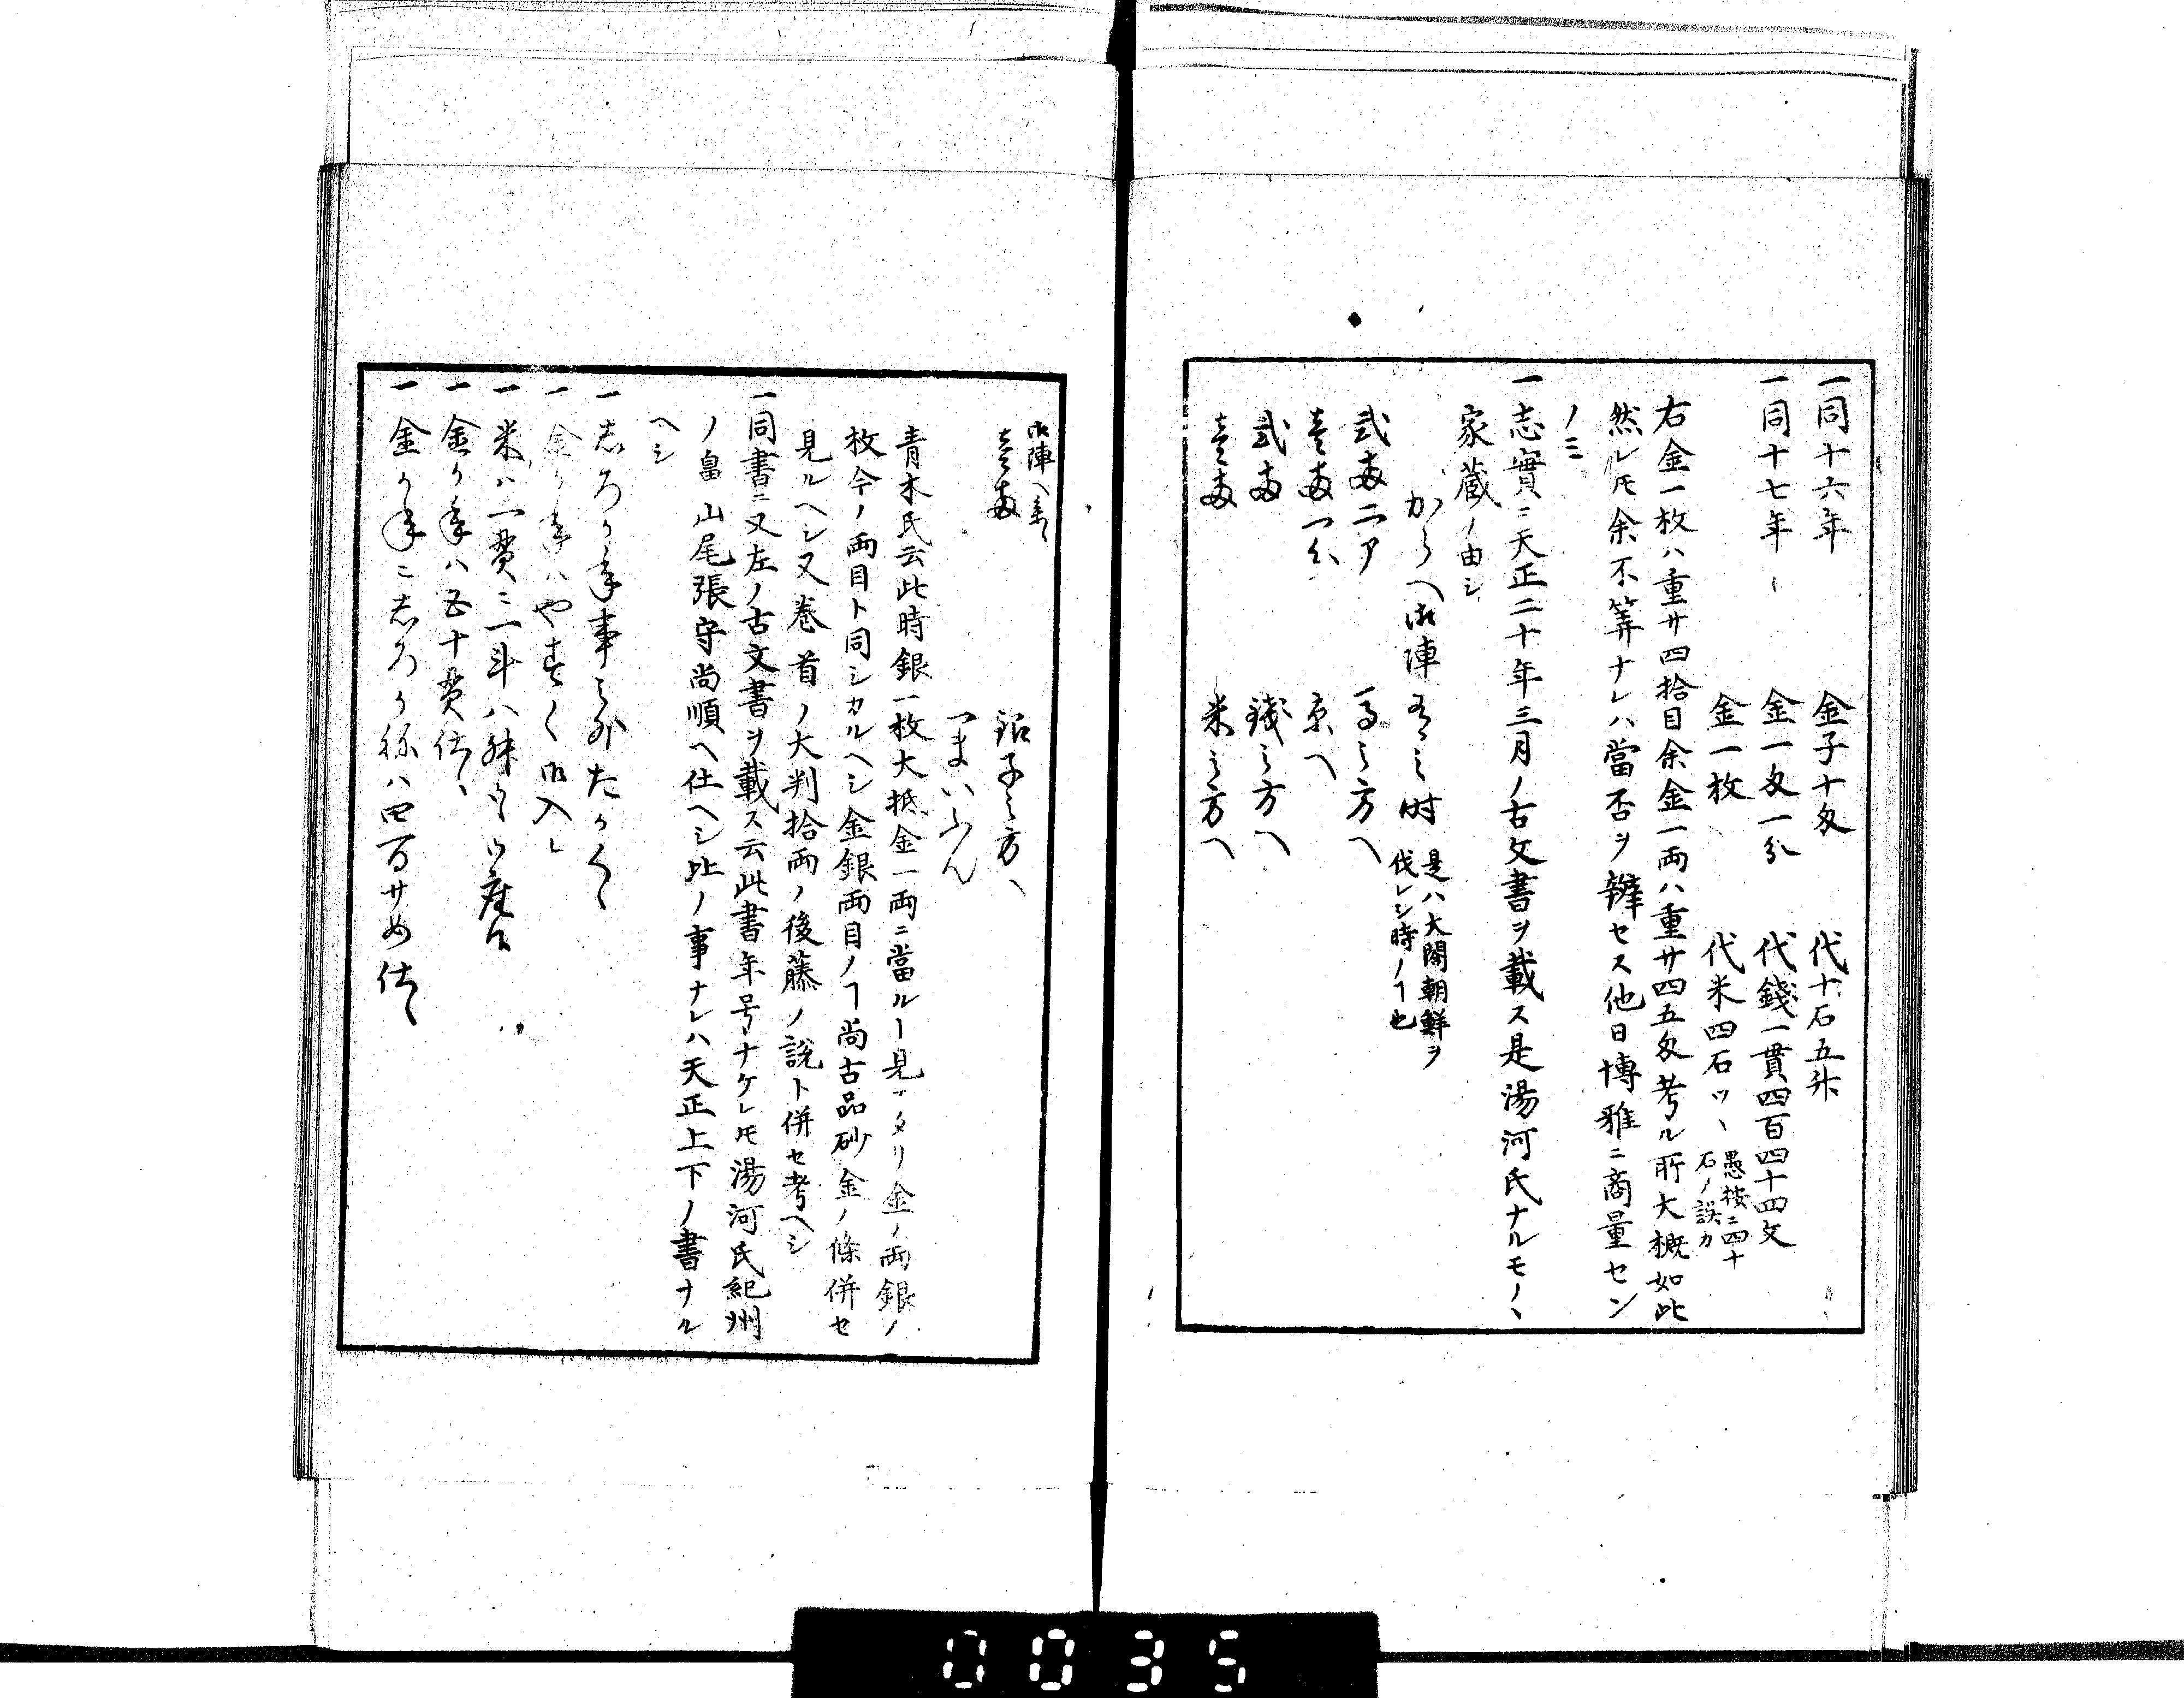 一同十六年　金子十匁　代十石五升
一同十七年　金一匁一分　代錢一貫四百四十四文
金一枚　代米四石ツヽ　愚按ニ四十
石ノ誤カ
右金一枚ハ重サ四拾目余金一両ハ重サ四五匁考ル所大概如此
然レ𪜈余不筭ナレハ當否ヲ辨セス他日博雅ニ商量セン
ノミ
一志實ニ天正二十年三月ノ古文書ヲ載ス是湯河氏ナルモノヽ
家蔵ノ由シ
からへ御陣 之時　是ハ大閤朝鮮ヲ
伐レシ時ノヿ也
弐両二ア　之方へ
壹両一分　京へ
弐両　錢之方へ
壹両　米之方へ
御陣へ
壹両　銀子之方へ
一まいふん
青木氏云此時銀一枚大抵金一両ニ當ルー見エタリ金ノ両銀ノ
枚今ノ両目ト同シカルヘシ金銀両目ノヿ尚古品砂金ノ條併セ
見ルヘシ又巻首ノ大判拾両ノ後藤ノ説ト併セ考ヘシ
一同書ニ又左ノ古文書ヲ載ス云此書年号ナケレ𪜈湯河氏紀州
ノ畠山尾張守尚順ヘ仕ヘシ比ノ事ナレハ天正上下ノ書ナル
ヘシ
一志ろか年事之外たかく
一金か年ハやすく御入し
一米ハ一貫ニ二斗八升
一金か年ハ五十貫仕
一金か年ニ志ろか袮ハ四百サめ仕
0035